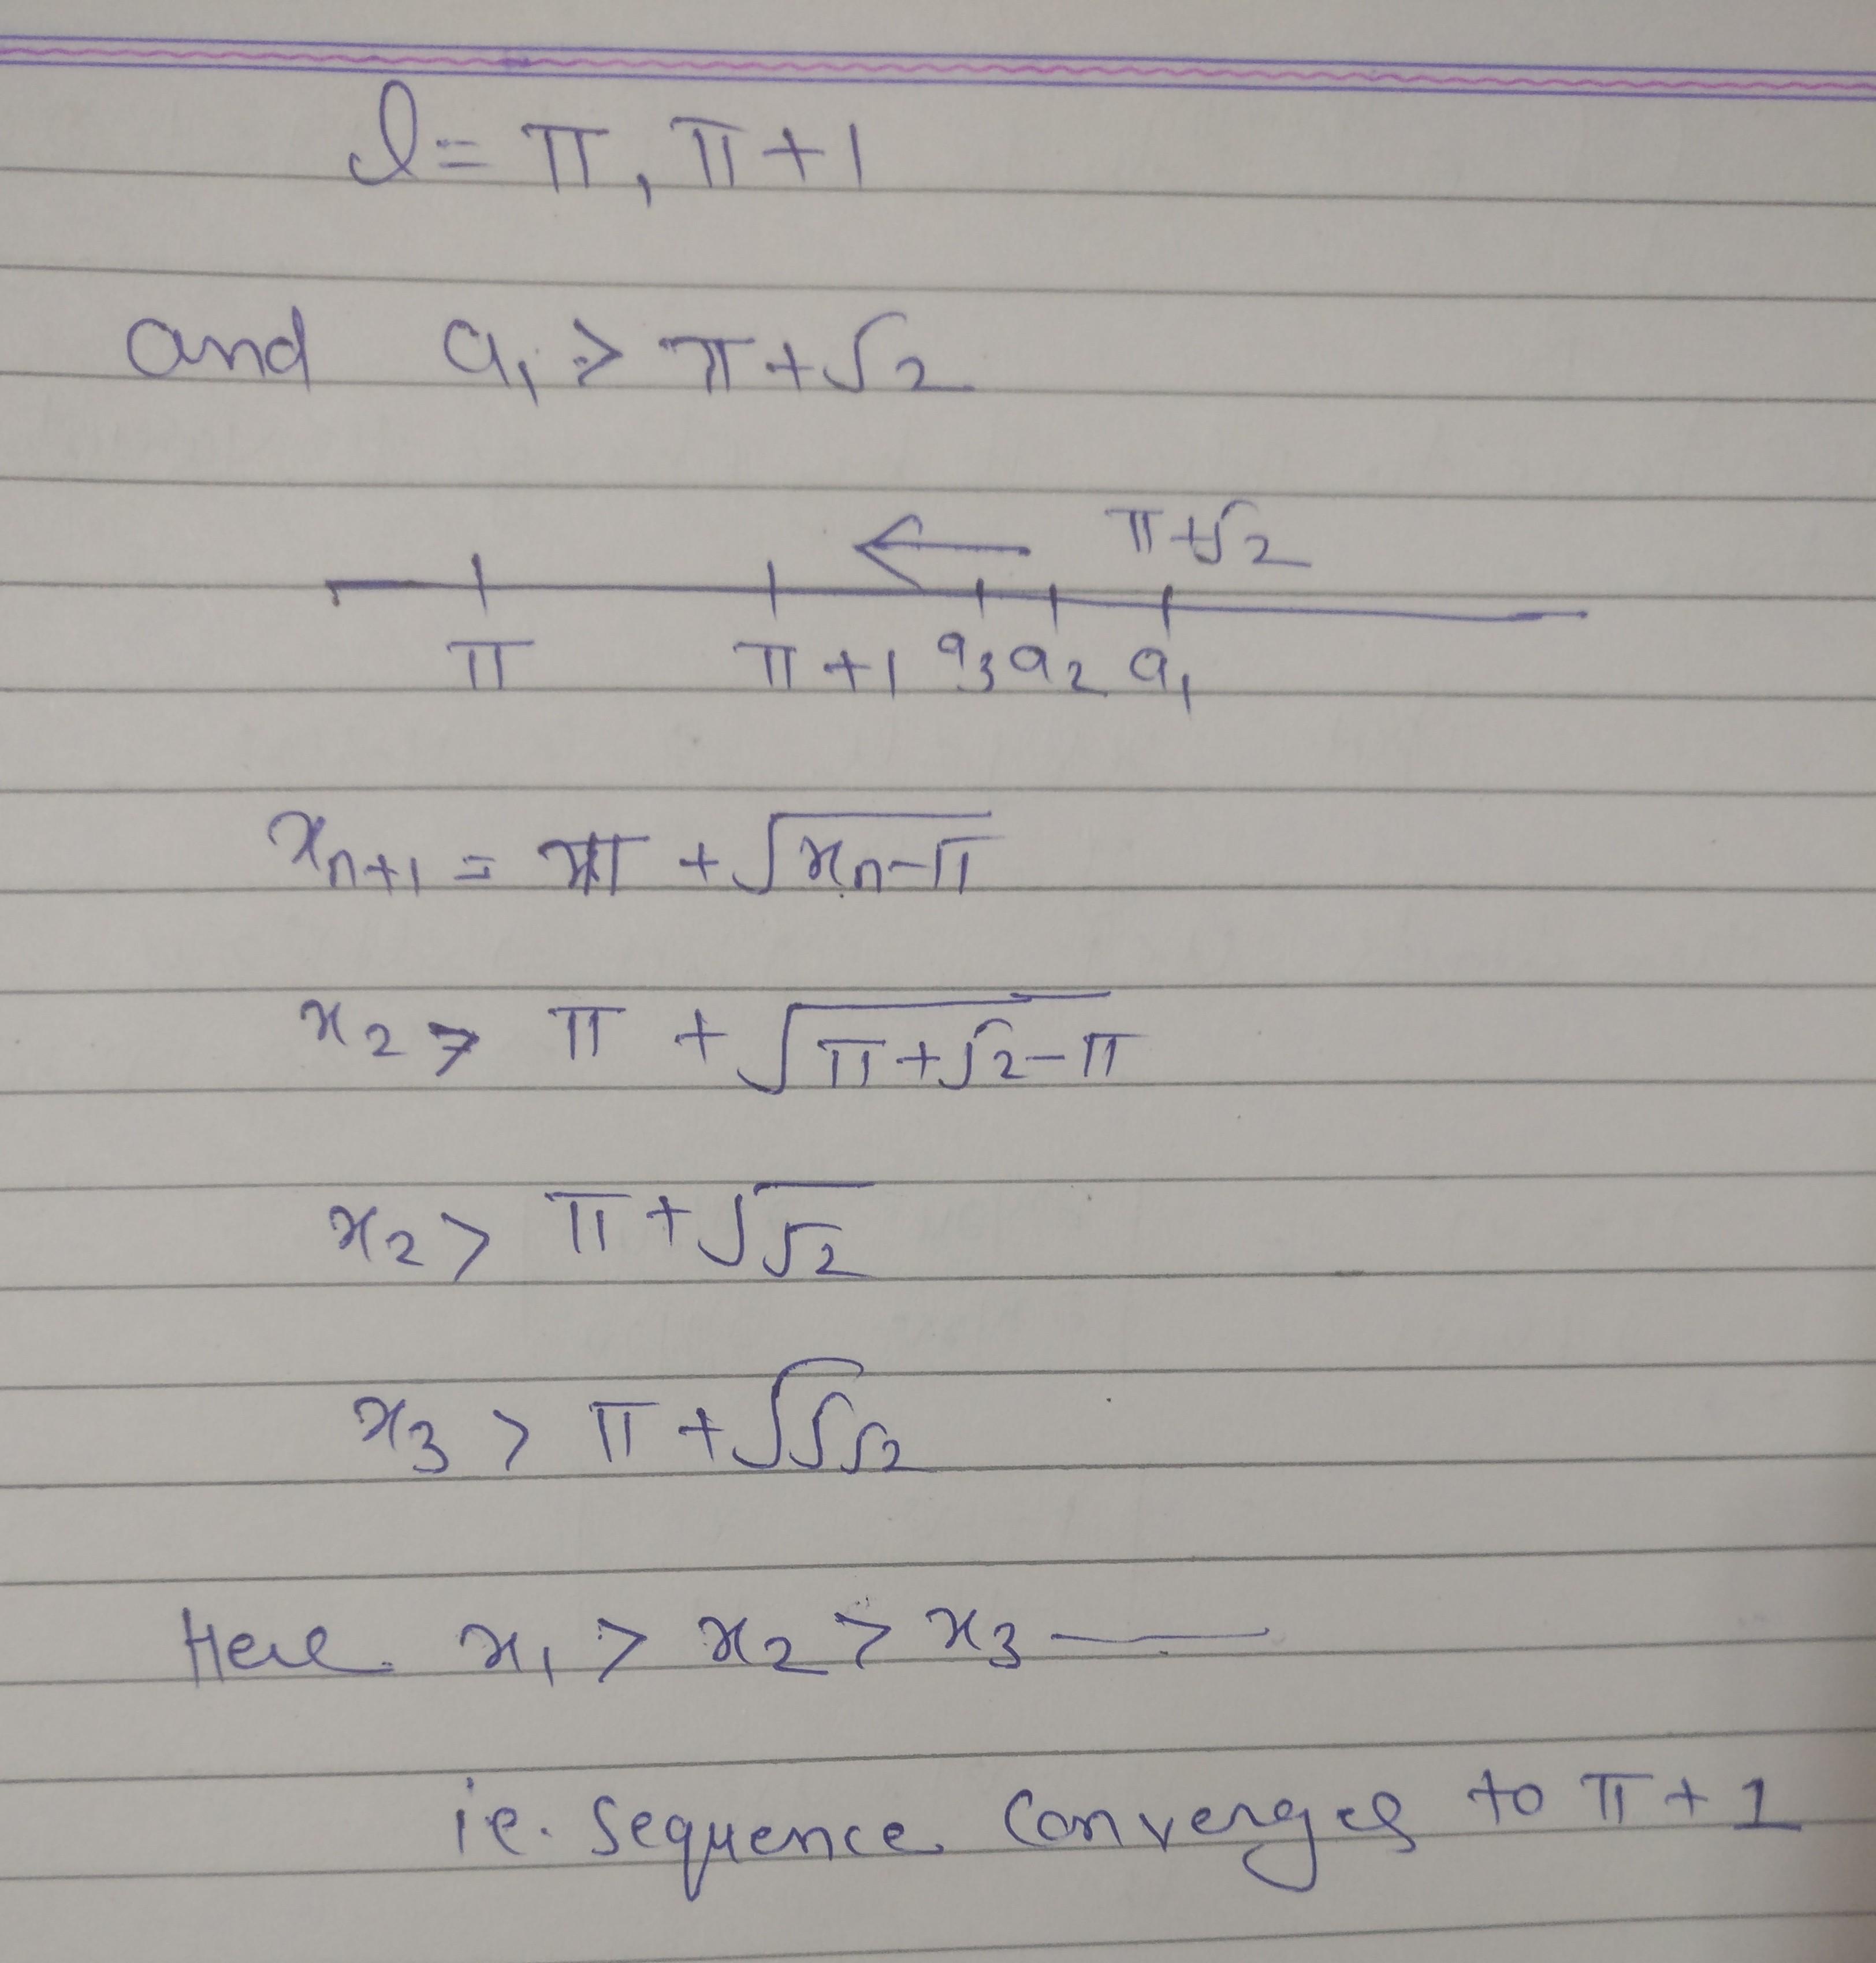 l = π, π+1
and a₁ > π+√2
π+√2
π π+1 a₃ a₂ a₁
xₙ₊₁ = π + √(xₙ-π)
x₂ > π + √(π+√2-π)
x₂ > π+√√2
x₃ > π+√√√2
Here x₁ > x₂ > x₃ ——
ie. sequence converges to π+1